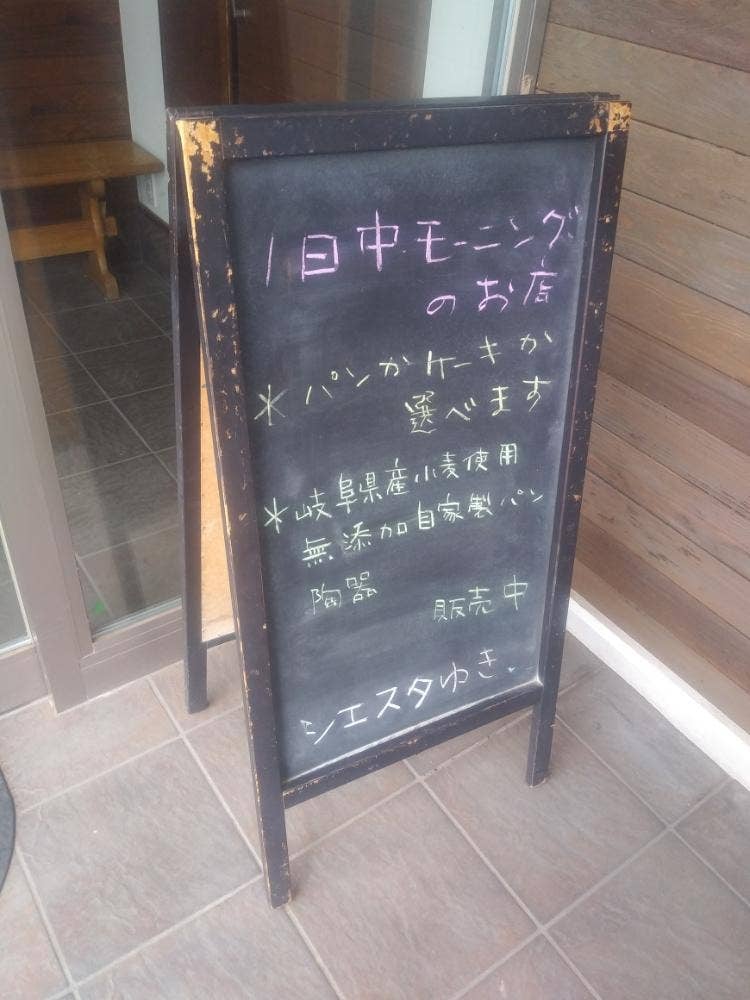 1日中モーニング
のお店
＊パンかケーキか
選べます
＊岐阜県産小麦使用
無添加自家製パン
陶器 販売中
シエスタゆき